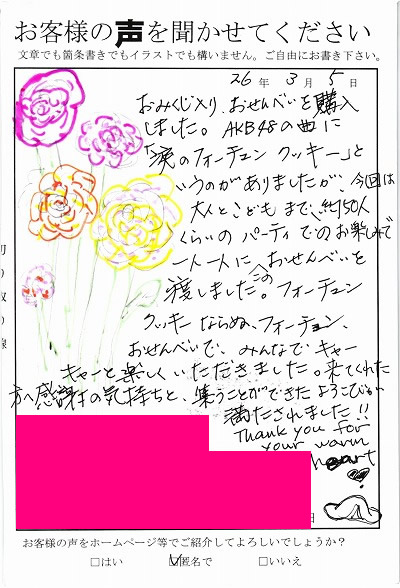 お客様の声を聞かせてください
文章でも箇条書きでもイラストでも構いません。ご自由にお書き下さい。
26年 3月 5日
おみくじ入り、おせんべいを購入
しました。AKB48の曲に
「恋のフォーチュン クッキー」と
いうのがありましたが、今回は
大人とこどもまで、約150人
くらいの パーティでのお楽しみで
一人一人に、おせんべいを
渡しました。このフォーチュン
クッキーならぬ、フォーチュン、
おせんべいで、みんなでキャー
キャーと楽しくいただきました。来てくれた
方へ感謝の気持ちと、集うことができたよろこびが
満たされました!!
Thank you for
your warm
heart
日
お客様の声をホームページ等でご紹介してよろしいでしょうか?
□はい ☑匿名で □いいえ